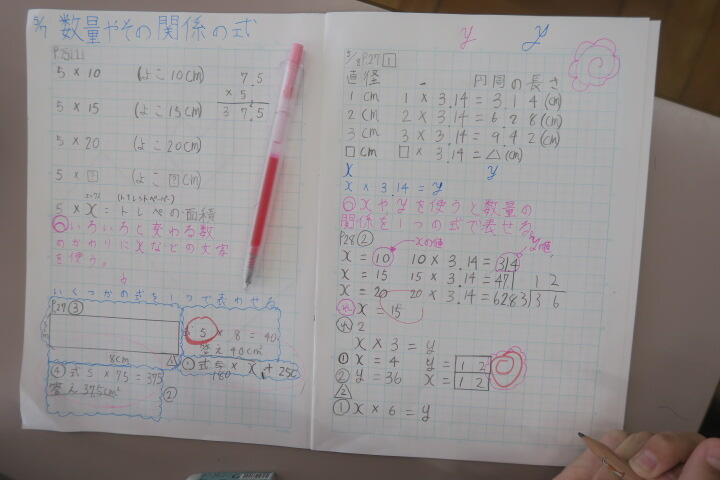 5/7 数量やその関係の式
5 × 10 (よこ10cm)
7.5
× 5
3 7.5
5 × 15 (よこ15cm)
5 × 20 (よこ20cm)
5 × ? (よこ?cm)
5 × x = トレペの面積
いろいろと変わる数
のかわりにxなどの文字
を使う。
いくつかの式を1つで表わせる
P29③
8cm
5 × 8 = 40
答え 40cm²
④ 式 5 × 75 = 375
答え 375cm²
②
x y
5/8 P27 1
直径 円周の長さ
1 cm 1 × 3.14 = 3.14 (cm)
2 cm 2 × 3.14 = 6.28 (cm)
3 cm 3 × 3.14 = 9.42 (cm)
□ cm □ × 3.14 = △ (cm)
x y
x × 3.14 = y
xやyを使うと数量の
関係を1つの式で表せる
P28②
xの値
yの値
x = 10 10 × 3.14 = 314
x = 15 15 × 3.14 = 471
x = 20 20 × 3.14 = 628
x = 15
2
x × 3 = y
① x = 4 y = 12
② y = 36 x = 12
2
① x × 6 = y